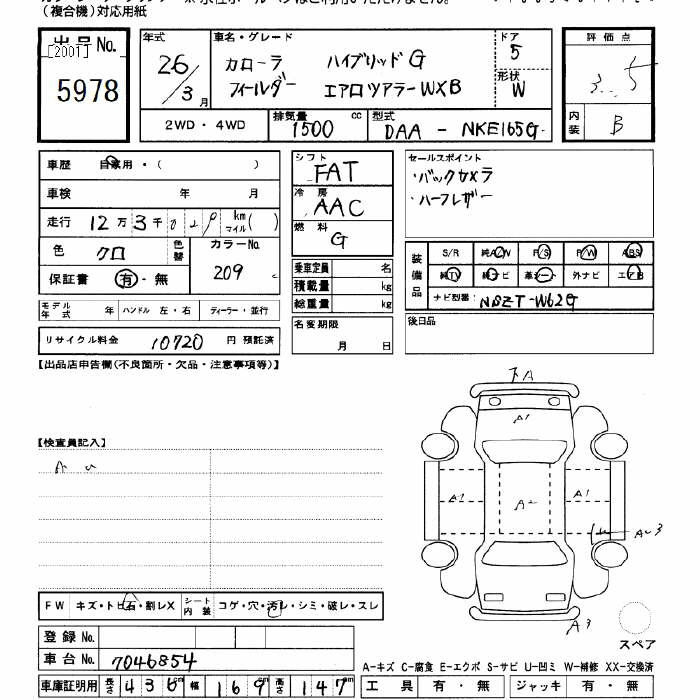 (複合機)対応用紙
出品No.
[2001]
5978
年式
26/3月
車名・グレード
カローラ ハイブリッドG
フィールダー エアロツアラーWXB
ドア
5
形状
W
評価点
3.5
内装
B
2WD・4WD
排気量
1500 cc
型式
DAA - NKE165G
車歴 自家用・( )
車検 年 月
走行 12万3千029 km マイル( )
色 クロ 色替
カラーNo.
209
保証書 有・無
モデル年式 年 ハンドル 左・右 ディーラー・並行
リサイクル料金 10720 円 預託済
シフト
FAT
冷房
AAC
燃料
G
乗車定員 名
積載量 kg
総重量 kg
名変期限
月 日
セールスポイント
・バックカメラ
・ハーフレザー
装備品
S/R 純A/W P/S P/W ABS
純TV 純ナビ 革シート 外ナビ エアB
ナビ型番: NSZT-W62G
後日品
【出品店申告欄(不良箇所・欠品・注意事項等)】
【検査員記入】
A U
下A
A1
A1
A2
A1
A3
スペア
FW キズ・トビ石・割レX シート内装 コゲ・穴・汚レ・シミ・破レ・スレ
登録No.
車台No. 7046854
車庫証明用 長さ 436cm 幅 169cm 高さ 147cm
A-キズ C-腐食 E-エクボ S-サビ U-凹ミ W-補修 XX-交換済
工具 有・無 ジャッキ 有・無